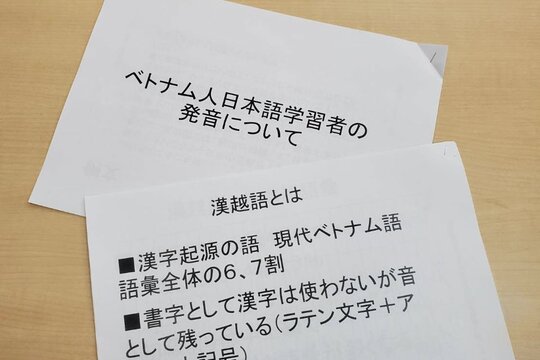 ベトナム人日本語学習者の
発音について
漢越語とは
■漢字起源の語　現代ベトナム語
語彙全体の6、7割
■書字として漢字は使わないが音
として残っている（ラテン文字＋ア
記号）